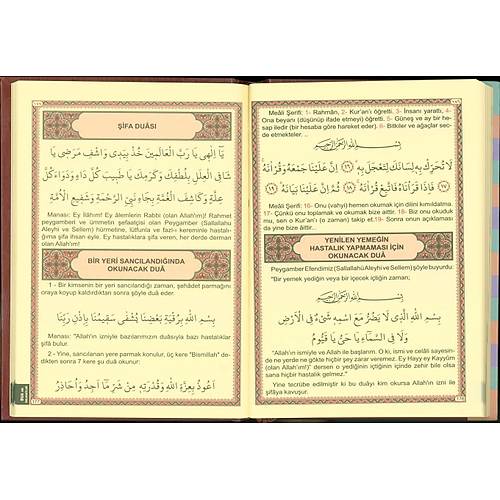 ŞİFA DUÂSI
يَٓا اِلٰهِى يَا رَبَّ الْعَالَمِينَ خُذْ بِيَدِى وَاشْفِ مَرْضِى يَا
شَافِىَ الْعِلَلِ بِلُطْفِكَ وَكَرَمِكَ يَا طَبِيبَ كُلِّ دَاءٍ وَدَوَاءَ كُلِّ
عِلَّةٍ وَكَاشِفَ الْغُمَّةِ بِجَاهِ نَبِىِّ الرَّحْمَةِ وَشَفِيعِ الْاُمَّةِ
Manası: Ey ilâhım! Ey âlemlerin Rabbi (olan Allah'ım)! Rahmet
peygamberi ve ümmetin şefaatçisi olan Peygamber (Sallallahu
Aleyhi ve Sellem) hürmetine, lütfunla ve fazl-ı kereminle hastalık-
larıma şifa ihsan et. Ey hastalıklara şifa veren, her derde derman
olan Allah'ım!
BİR YERİ SANCILANDIĞINDA
OKUNACAK DUÂ
1 - Bir kimsenin bir yeri sancılandığı zaman, şehâdet parmağını
oraya koyup kaldırdıktan sonra şöyle duâ eder.
بِسْمِ اللّٰهِ بِرُقْيَةِ بَعْضِنَا يُشْفٰى سَقِيمُنَا بِاِذْنِ رَبِّنَا
Manası: "Allah'ın izniyle bazılarımızın duâsıyla bazı hastalıklar
şifâ bulur.
2 - Yine, sancılanan yere parmak konulur, üç kere "Bismillah" de-
dikten sonra 7 kere şu duâ okunur;
اَعُوذُ بِعِزَّةِ اللّٰهِ وَقُدْرَتِهِ مِنْ شَرِّ مَٓا اَجِدُ وَاُحَاذِرُ
177
Meâli Şerifi; 1- Rahmân, 2- Kur'an'ı öğretti, 3- İnsanı yarattı, 4-
Ona beyanı (düşünüp ifade etmeyi) öğretti. 5- Güneş ve ay bir he-
sap iledir (bir hesaba göre hareket eder). 6- Bitkiler ve ağaçlar sec-
de etmekteler. ..
بِسْمِ اللّٰهِ الرَّحْمٰنِ الرَّحِيمِ
لَا تُحَرِّكْ بِهِ لِسَانَكَ لِتَعْجَلَ بِهِ ﴿١٦﴾ اِنَّ عَلَيْنَا جَمْعَهُ وَقُرْاٰنَهُ
﴿١٧﴾ فَاِذَا قَرَاْنَاهُ فَاتَّبِعْ قُرْاٰنَهُ ﴿١٨﴾ ثُمَّ اِنَّ عَلَيْنَا بَيَانَهُ ﴿١٩﴾
Meâli Şerifi; 16- Onu (vahyi) hemen okumak için dilini kımıldatma.
17- Çünkü onu toplamak ve okumak bize aittir. 18- Biz onu okuduk
mu, sen o Kur'an'ı (o zaman) takip et.19- Sonra onun açıklaması da
yine bize âittir...
YENİLEN YEMEĞİN
HASTALIK YAPMAMASI İÇİN
OKUNACAK DUÂ
Peygamber Efendimiz (Sallallahü Aleyhi ve Sellem) şöyle buyurdu:
"Bir yemek yediğin veya bir içecek içtiğin zaman;
بِسْمِ اللّٰهِ الرَّحْمٰنِ الرَّحِيمِ
بِسْمِ اللّٰهِ الَّذِى لَا يَضُرُّ مَعَ اسْمِهِ شَىْءٌ فِى الْاَرْضِ
وَلَا فِى السَّمَٓاءِ يَا حَىُّ يَا قَيُّومُ
"Allah'ın ismiyle ve Allah ile başlarım. O ki, ismi ve celâli sayesin-
de ne yerde ne gökte hiçbir şey zarar veremez. Ey Hayy ey Kayyûm
(olan Allah'ım!)" dersen o yediğinin içtiğinin içinde zehir bile olsa
sana hiçbir hastalık gelmez."
Yine tecrübe edilmiştir ki bu duâyı kim okursa Allah'ın izni ile
şifâya kavuşur.